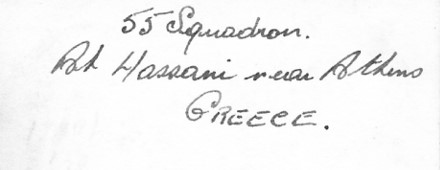 55 Squadron.
At Hassani near Athens
GREECE.